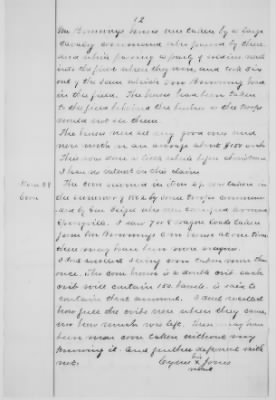 12
Mr Bonney's horses were taken by a large
cavalry command who passed by there
and while passing a party of soldiers went
into the field where they were, and took six
out of the same which Mr Bonney had
in the field. The horses had been taken
to the field behind the timber so the troops
would not see them.
The horses were all very good ones and
were worth on an average about $100 each
This was done a little while before
I have no interest in this claim
Item 28
Corn
The corn named in item 28 was taken in
the summer of 1862 by some troops
camped around
I saw 7 or 8 wagon loads taken
from Mr Bonney's corn house at one time
there may have been more wagons.
I don't recollect seeing corn taken more than
once. The corn house is a double crib each
crib will contain 150 barrels. is said to
contain that amount. I don't recollect
how full the cribs were when they came,
nor how much was left. There may have
been more corn taken without my
knowing it. And further deponent saith
not.
his
Cyrus X Jones
mark